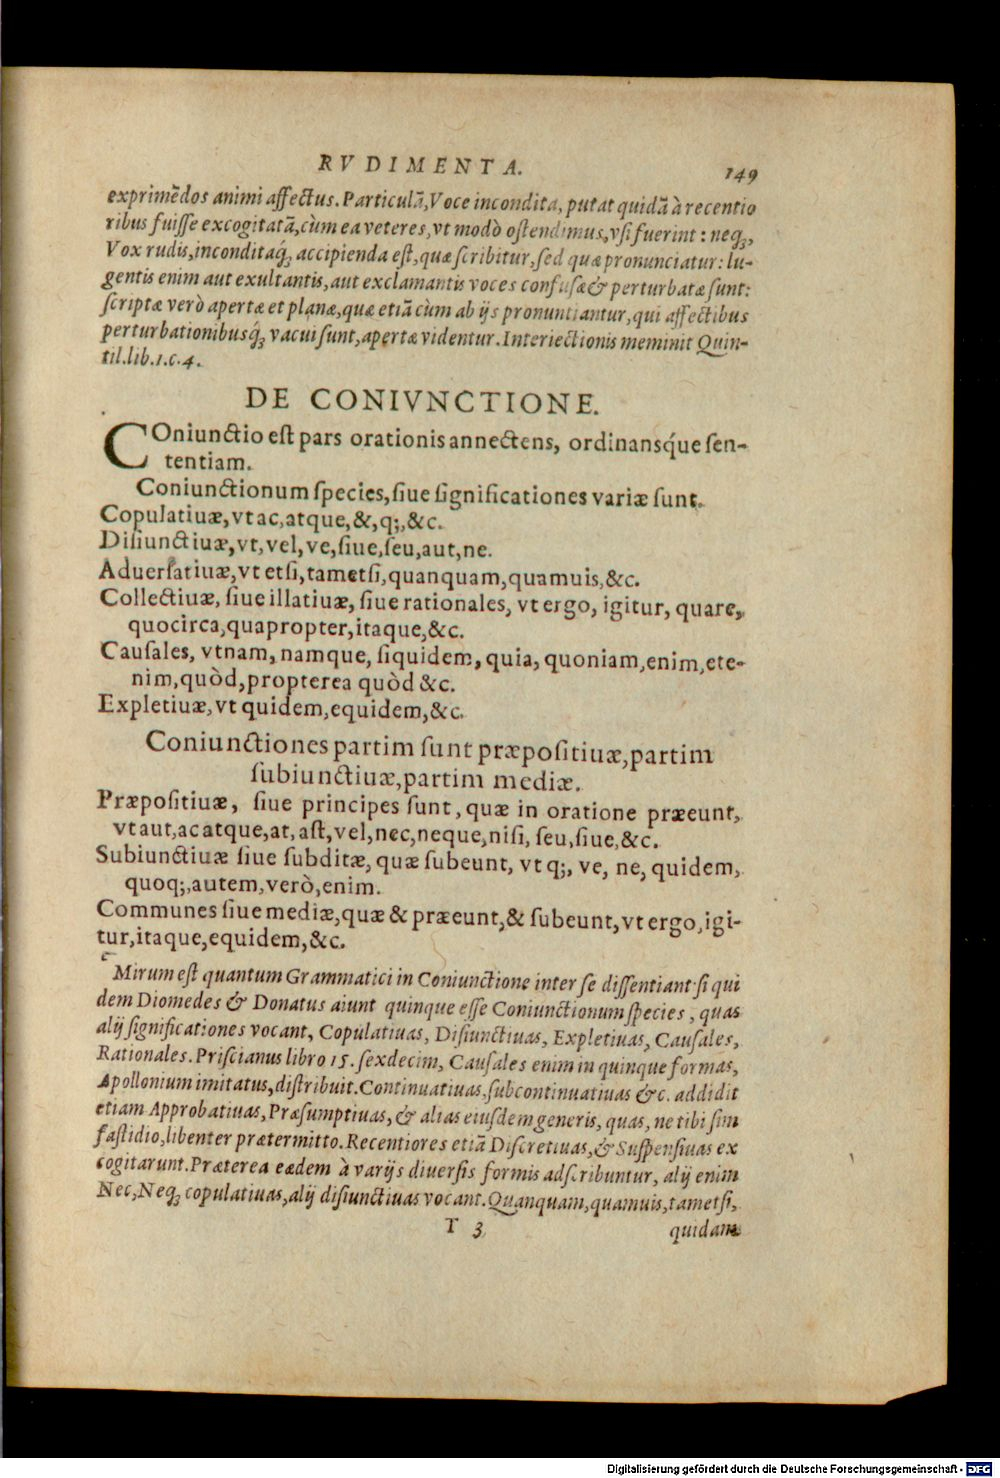 RVDIMENTA. 149
exprimẽdos animi affectus. Particulã, Voce incondita, putat quidã à recentio
ribus fuiſſe excogitatã, cùm ea veteres, vt modò oſtendimus, vſi fuerint: neq;,
Vox rudis, inconditaq́;, accipienda eſt, quæ ſcribitur, ſed quæ pronunciatur: lu-
gentis enim aut exultantis, aut exclamantis voces confuſæ & perturbatæ ſunt:
ſcriptæ verò apertæ et planæ, quæ etiã cùm ab ijs pronuntiantur, qui affectibus
perturbationibusq́; vacui ſunt, apertæ videntur. Interiectionis meminit Quin-
til. lib. 1. c. 4.
DE CONIVNCTIONE.
COniunctio eſt pars orationis annectens, ordinansq́ue ſen-
tentiam.
Coniunctionum ſpecies, ſiue ſignificationes variæ ſunt.
Copulatiuæ, vt ac, atque, &, q;, &c.
Diſiunctiuæ, vt, vel, ve, ſiue, ſeu, aut, ne.
Aduerſatiuæ, vt etſi, tametſi, quanquam, quamuis, &c.
Collectiuæ, ſiue illatiuæ, ſiue rationales, vt ergo, igitur, quare,
quocirca, quapropter, itaque, &c.
Cauſales, vt nam, namque, ſiquidem, quia, quoniam, enim, ete-
nim, quòd, propterea quòd &c.
Expletiuæ, vt quidem, equidem, &c.
Coniunctiones partim ſunt præpoſitiuæ, partim
ſubiunctiuæ, partim mediæ.
Præpoſitiuæ, ſiue principes ſunt, quæ in oratione præeunt,
vt aut, ac atque, at, aſt, vel, nec, neque, niſi, ſeu, ſiue, &c.
Subiunctiuæ ſiue ſubditæ, quæ ſubeunt, vt q;, ve, ne, quidem,
quoq;, autem, verò, enim.
Communes ſiue mediæ, quæ & præeunt, & ſubeunt, vt ergo, igi-
tur, itaque, equidem, &c.
Mirum eſt quantum Grammatici in Coniunctione inter ſe diſſentiant: ſi qui
dem Diomedes & Donatus aiunt quinque eſſe Coniunctionum ſpecies, quas
alij ſignificationes vocant, Copulatiuas, Diſiunctiuas, Expletiuas, Cauſales,
Rationales. Priſcianus libro 15. ſexdecim, Cauſales enim in quinque formas,
Apollonium imitatus, diſtribuit. Continuatiuas, ſubcontinuatiuas &c. addidit
etiam Approbatiuas, Præſumptiuas, & alias eiuſdem generis, quas, ne tibi ſim
faſtidio, libenter prætermitto. Recentiores etiã Diſcretiuas, & Suſpenſiuas ex
cogitarunt. Præterea eædem à varijs diuerſis formis adſcribuntur, alij enim
Nec, Neq; copulatiuas, alij diſiunctiuas vocant. Quanquam, quamuis, tametſi,
T 3 quidam
Digitalisierung gefördert durch die Deutsche Forschungsgemeinschaft - DFG